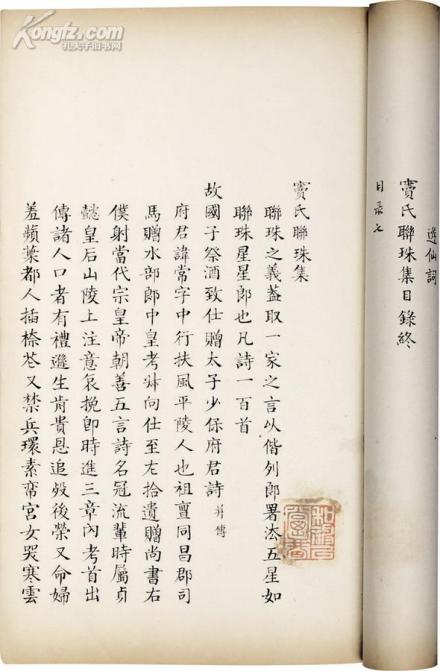 Kongfz.com
孔夫子旧书网
遊仙詞
竇氏聯珠集目錄終
目录七
竇氏聯珠集
聯珠之義蓋取一家之言以偕列郎署法五星如
聯珠星星郎也凡詩一百首
故國子祭酒致仕贈太子少保府君詩并傳
府君諱常字中行扶風平陵人也祖亶同昌郡司
馬贈水部郎中皇考叔向仕至左拾遺贈尚書右
僕射當代宗皇帝朝善五言詩名冠流輩時屬貞
懿皇后山陵上注意哀挽即時進三章內考首出
傳諸人口者有禮遲生肯貴恩追歿後榮又命婦
羞蘋葉都人插柰花又禁兵環素帟宮女哭寒雲